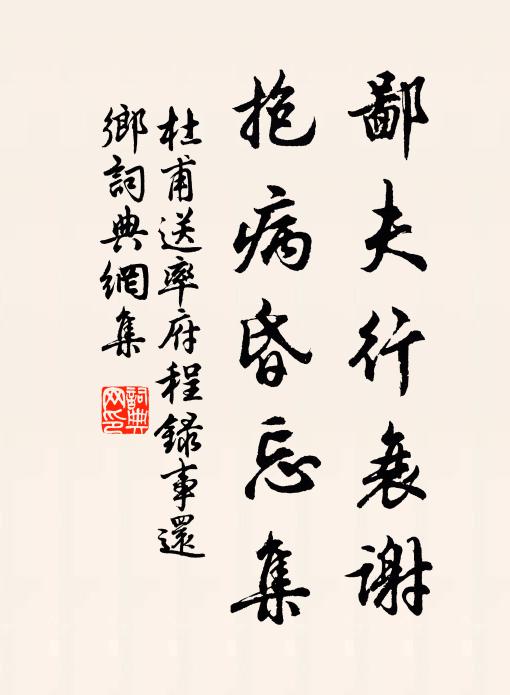 鄙夫行衰謝
抱病昏忘集
杜甫送率府程錄事還
鄉詞典網集
詞典
网印